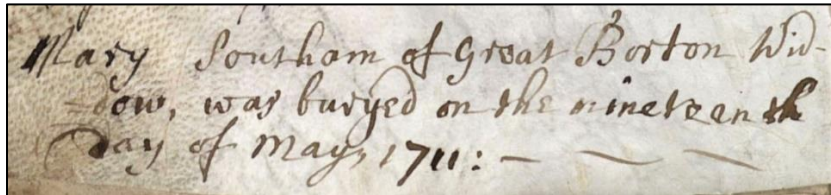 Mary Southam of Great Borton Wid-
=dow, was buryed on the nineteenth
Day of May, 1711: — — —